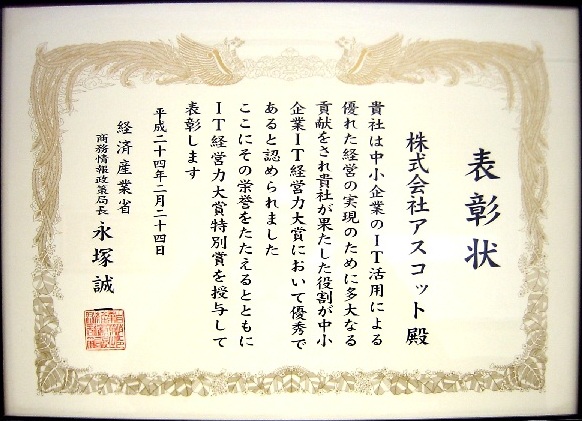 表彰状
株式会社アスコット殿
貴社は中小企業のIT活用による
優れた経営の実現のために多大なる
貢献をされ貴社が果たした役割が中小
企業IT経営力大賞において優秀で
あると認められました
ここにその栄誉をたたえるとともに
IT経営力大賞特別賞を授与して
表彰します
平成二十四年二月二十四日
経済産業省
商務情報政策局長 永塚誠一